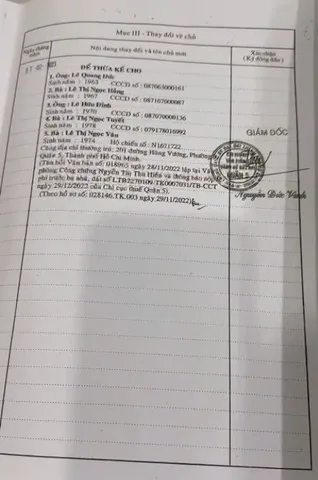 Mục III - Thay đổi về chủ
Ngày, tháng, năm
Nội dung thay đổi và tên chủ mới
Xác nhận
(Ký đóng dấu)
ĐỂ THỪA KẾ CHO
1. Ông: Lê Quang Đức
Sinh năm : 1963 CCCD số : 087063000161
2. Bà : Lê Thị Ngọc Hồng
Sinh năm : 1967 CCCD số : 087167000087
3. Ông : Lê Hữu Đình
Sinh năm : 1970 CCCD số : 087070000136
4. Bà : Lê Thị Ngọc Tuyết
Sinh năm : 1978 CCCD số : 079178016992
5. Bà : Lê Thị Ngọc Vân
Sinh năm : 1974 Hộ chiếu số : N1601722
Cùng địa chỉ thường trú: 201 đường Hùng Vương, Phường
Quận 5, Thành phố Hồ Chí Minh.
(Tờ khai Văn bản số: 018965 ngày 28/11/2022 lập tại Văn
phòng Công chứng Nguyễn Thị Thu Hiền và thông báo nộp lệ
phí trước bạ nhà, đất số LTB2270109-TK0007031/TB-CCT
ngày 29/12/2022 của Chi cục thuế Quận 5).
(Theo hồ sơ số: 028146.TK.003 ngày 29/11/2022)
GIÁM ĐỐC
QUẬN 5
Nguyễn Đức Vinh